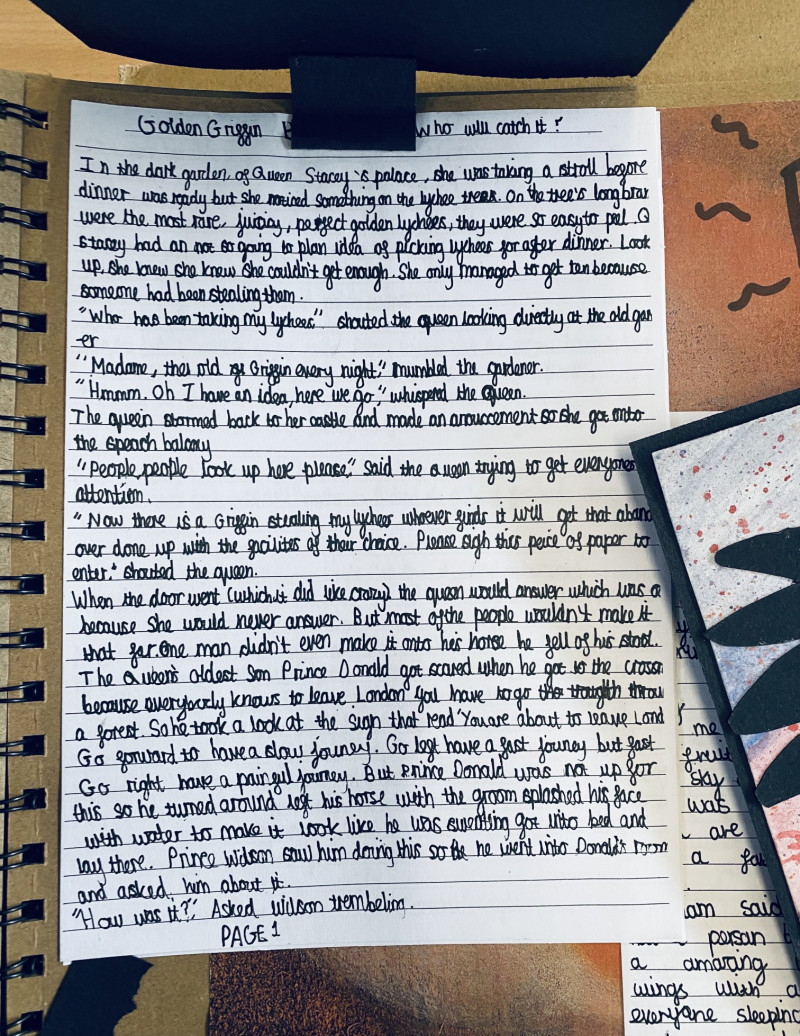 Golden Griffin who will catch it?
In the dark garden, of Queen Stacey's palace, she was taking a stroll before
dinner was ready but she noticed something on the lychee trees. On the tree's long
were the most rare, juicy, perfect golden lychees, they were so easy to peel. Q
Stacey had an not so going to plan idea of picking lychees for after dinner. Look
up, she knew she knew she couldn't get enough. She only managed to get ten because
someone had been stealing them.
"Who has been taking my lychees" shouted the queen looking directly at the old gar
-er
"Madame, thes old Griffin every night," mumbled the gardener.
"Hmmm. Oh I have an idea, here we go," whispered the Queen.
The queen stormed back to her castle and made an anouccement so she got onto
the speach balcony
"People, people look up here please," said the queen trying to get everyones
attention.
"Now there is a Griffin stealing my lychees whoever finds it will get that aband
over done up with the facilites of their choice. Please sigh this peice of paper to
enter." shouted the queen.
When the door went (which it did like crazy) the queen would answer which was a
because she would never answer. But most of the people wouldn't make it
that far. One man didn't even make it onto his horse he fell of his stool.
The Queen's oldest Son Prince Donald got scared when he got to the crossr
because everybody knows to leave London you have to go throu
a forest. So he took a look at the sign that read 'You are about to leave Lond
Go forward to have a slow journey. Go left have a fast journey but fast
Go right have a painful journey. But Prince Donald was not up for
this so he turned around left his horse with the groom splashed his face
with water to make it look like he was sweating got into bed and
lay there. Prince Wilson saw him doing this so he went into Donald's room
and asked him about it.
"How was it?" Asked Wilson trembelin.
PAGE 1
me
fruit
sky
was
are
a
am said
person
a amazing
wings with a
everyone sleeping